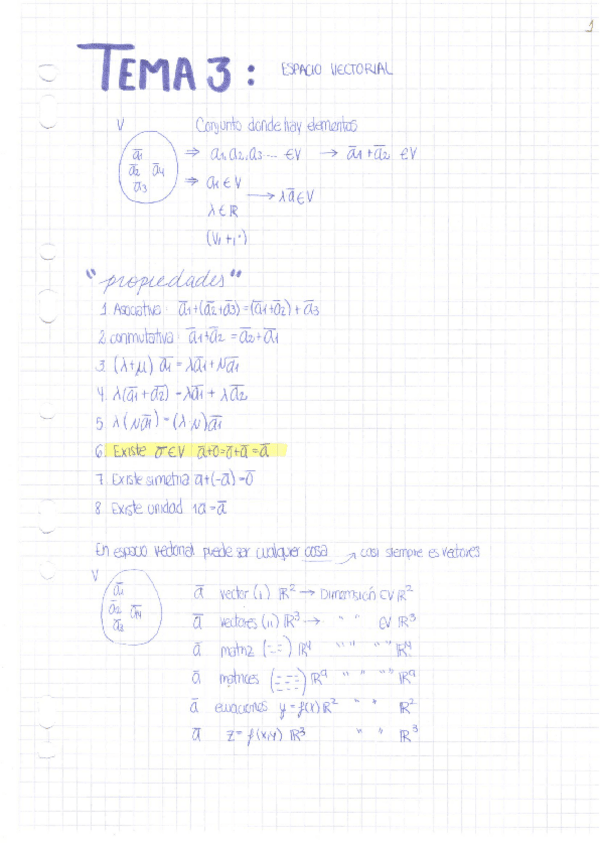 1
TEMA 3: ESPACIO VECTORIAL
V Conjunto donde hay elementos
ā1 ā2 ā4 ā3
⇒ a1, a2, a3 ... ∈V → ā1 + ā2 ∈V
⇒ a1 ∈ V
→ λā∈V
λ ∈ ℝ
(V, +, ·)
"propiedades"
1. Asociativa: ā1+(ā2+ā3)=(ā1+ā2)+ā3
2. conmutativa: ā1+ā2 = ā2+ā1
3. (λ+μ) ā1 = λā1 + μā1
4. λ(ā1+ā2) = λā1 + λā2
5. λ(μā1) = (λμ)ā1
6. Existe ō∈V ā+ō=ō+ā=ā
7. Existe simetria a+(-ā)=ō
8. Existe unidad 1a=ā
En espacio vectorial puede ser cualquier cosa → casi siempre es vectores
V
ā1 ā2 ā4 ā3
ā vector (ı) ℝ² → Dimensión EV ℝ²
ā vectores (ıı) ℝ³ → " " EV ℝ³
ā matriz (--) ℝ⁴ " " " " ℝ⁴
ā matrices (---) ℝ⁹ " " " " ℝ⁹
ā ecuaciones y = f(x) ℝ² " " ℝ²
ā z = f(x,y) ℝ³ " " ℝ³